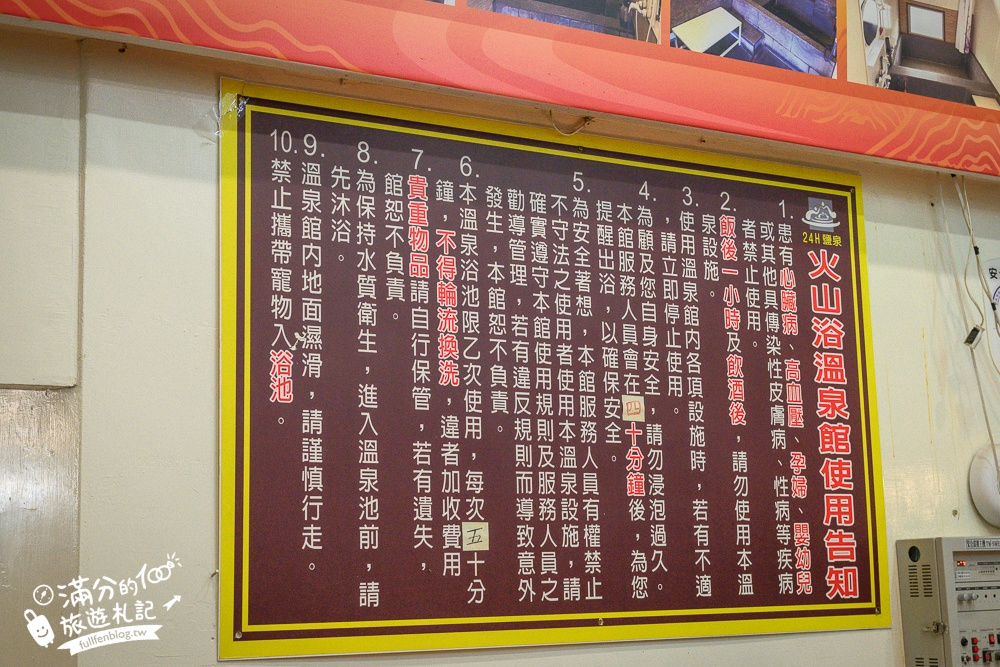 24H 鹽泉
火山浴溫泉館使用告知
1.患有心臟病、高血壓、孕婦、嬰幼兒
或其他具傳染性皮膚病、性病等疾病
者禁止使用。
2.飯後一小時及飲酒後，請勿使用本溫
泉設施。
3.使用溫泉館內各項設施時，若有不適
，請立即停止使用。
4.為顧及您自身安全，請勿浸泡過久。
本館服務人員會在四十分鐘後，為您
提醒出浴，以確保安全。
5.為安全著想，本館服務人員有權禁止
不守法之使用者使用本溫泉設施，請
確實遵守本館使用規則及服務人員之
勸導管理，若有違反規則而導致意外
發生，本館恕不負責。
6.本溫泉浴池限乙次使用，每次五十分
鐘，不得輪流換洗，違者加收費用
7.貴重物品請自行保管，若有遺失，
館恕不負責。
8.為保持水質衛生，進入溫泉池前，請
先沐浴。
9.溫泉館內地面濕滑，請謹慎行走。
10.禁止攜帶寵物入浴池。
安
滿分的
旅遊札記
fullfenblog.tw